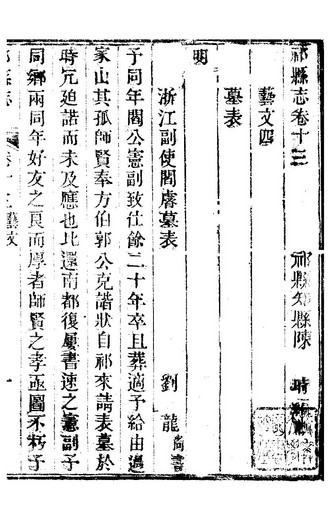 祁縣志卷十三
祁縣知縣陳 時
藝文四
墓表
明
浙江副使閻睿墓表
劉龍尚書
予同年閻公憲副致仕餘二十年卒且葬適予給由過
家山其孤師賢奉方伯郭公克諧狀自祁來請表墓於
時冗廹諾而未及應也比還南都復屢書速之憲副子
同鄉兩同年好友之良而厚者師賢之孝亟圖不朽子
祁縣志
卷十三藝文
一